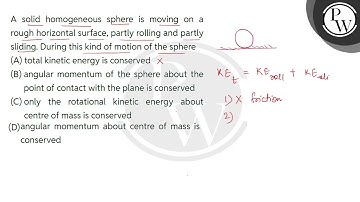 A solid homogeneous sphere is moving on a
rough horizontal surface, partly rolling and partly
sliding. During this kind of motion of the sphere
(A) total kinetic energy is conserved ×
(B) angular momentum of the sphere about the
point of contact with the plane is conserved
(C) only the rotational kinetic energy about
centre of mass is conserved
(D) angular momentum about centre of mass is
conserved
KEt = KEroll + KEsli
1) × friction
2)
P
W